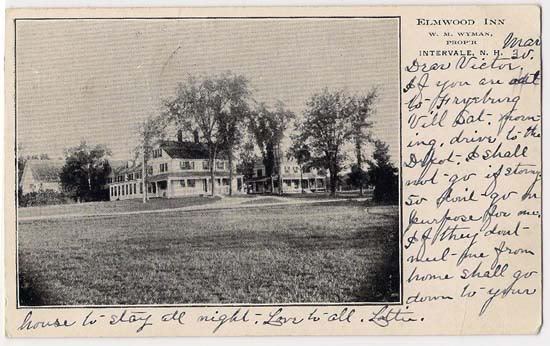 ELMWOOD INN
W. M. WYMAN,
PROP'R
INTERVALE, N. H.
Mar
30.
Dear Victor,
If you are out
to Fryeburg
Vill Sat. morn
ing, drive to the
Depot. I shall
not go if stormy
So don't go on
purpose for me.
If they dont
meet me from
home shall go
down to your
house to stay all night. Love to all. Lottie.